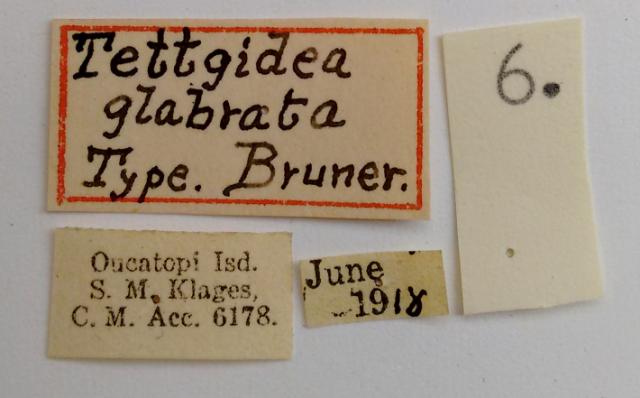 Tettgidea
glabrata
Type. Bruner.
6.
Oucatopi Isd.
S. M. Klages,
C. M. Acc. 6178.
June
1918